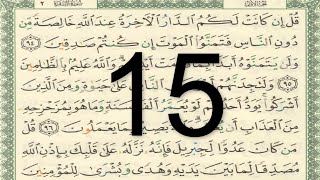 قُلْ إِن كَانَتْ لَكُمُ ٱلدَّارُ ٱلْأَخِرَةُ عِندَ ٱللَّهِ خَالِصَةً مِّن
دُونِ ٱلنَّاسِ فَتَمَنَّوُا۟ ٱلْمَوْتَ إِن كُنتُمْ صَٰدِقِينَ ٩٤
وَلَن يَتَمَنَّوْهُ وَٱللَّهُ عَلِيمٌۢ بِٱلظَّٰلِمِينَ
٩٥ وَلَتَجِدَنَّهُمْ ٱلنَّاسِ عَلَىٰ حَيَوٰةٍ وَمِنَ ٱلَّذِينَ
15
أَشْرَكُوا۟ يَوَدُّ أَحَدُهُمْ لَوْ يُعَمَّرُ سَنَةٍ وَمَا هُوَ بِمُزَحْزِحِهِۦ
مِنَ ٱلْعَذَابِ أَن بَصِيرٌۢ بِمَا يَعْمَلُونَ ٩٦
قُلْ مَن كَانَ عَدُوًّا لِّجِبْرِيلَ فَإِنَّهُۥ نَزَّلَهُۥ عَلَىٰ قَلْبِكَ بِإِذْنِ ٱللَّهِ
مُصَدِّقًا لِّمَا بَيْنَ يَدَيْهِ وَهُدًى وَبُشْرَىٰ لِلْمُؤْمِنِينَ